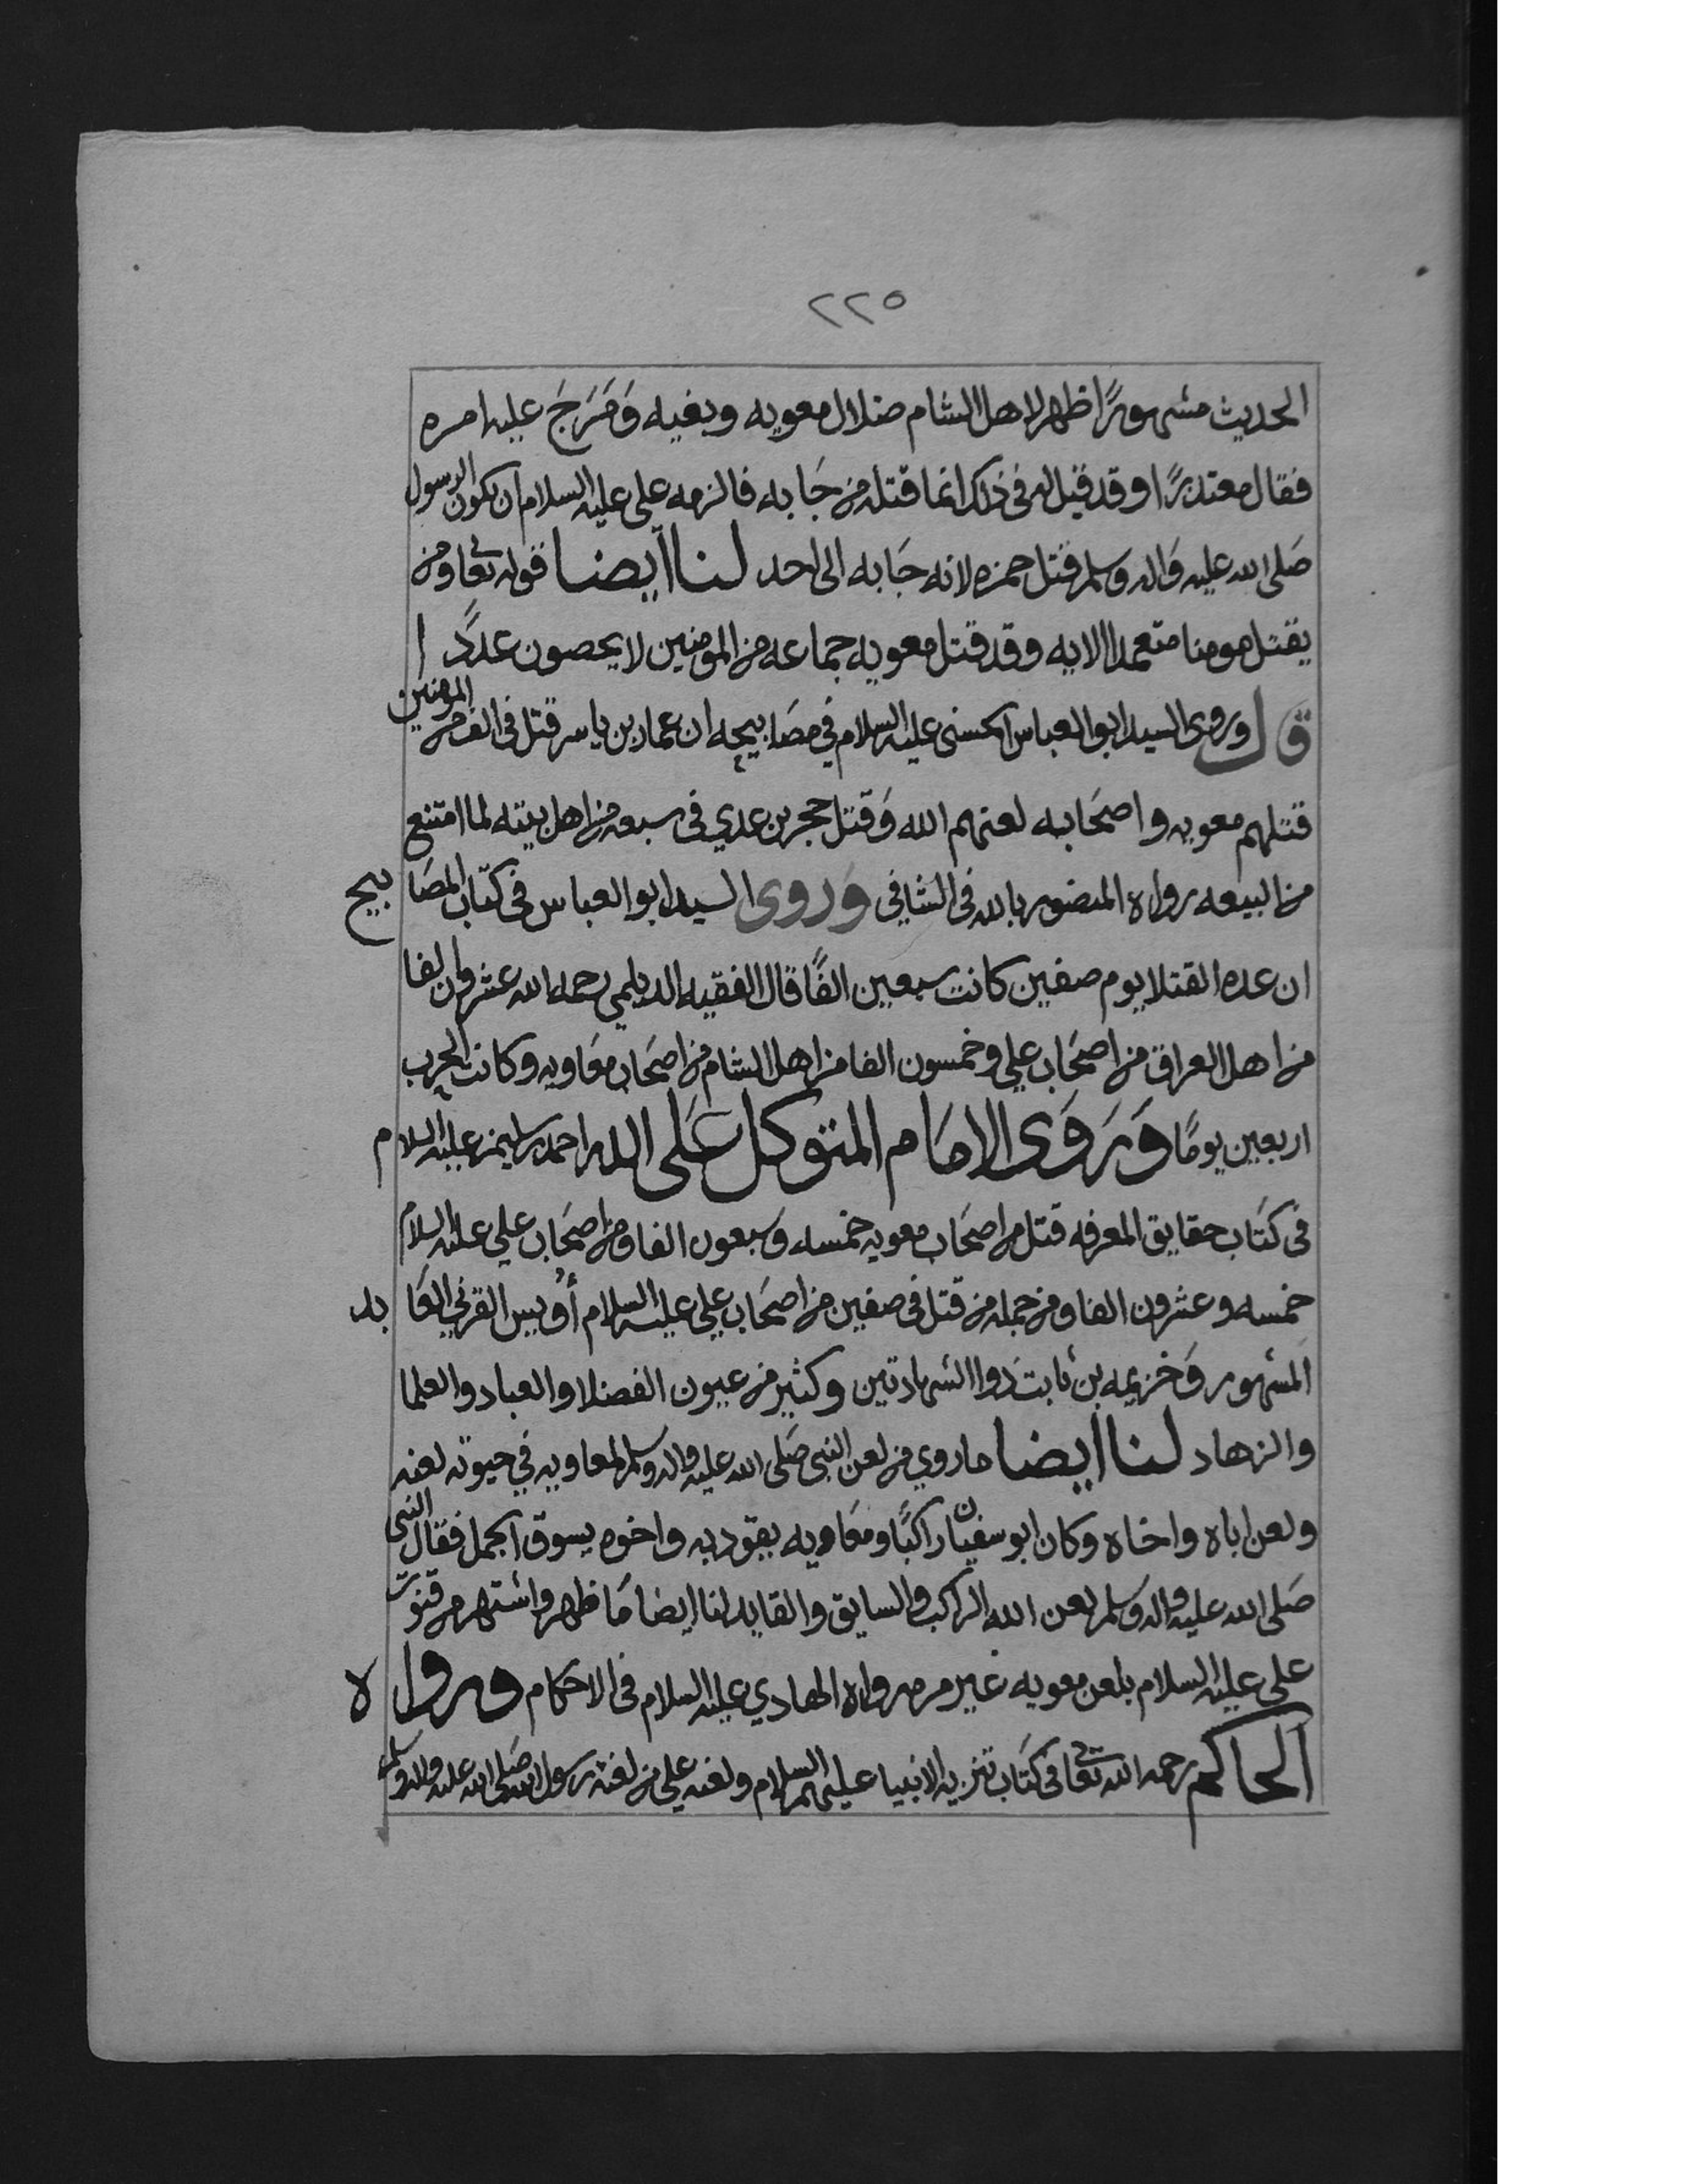 ٢٢٥
الحديث مشهورًا ظهر لاهل الشام ضلال معويه وبغيه وَمَرَجَ عليه امره
فقال معتذرًا وقد قيل له في ذلك انما قتله من جَا به فالزمه علي عليه السلام ان يكون الرسول
صَلى الله عليه وَاله وسلم قتل حمزه لانه جَا به الى احد لنا ايضا قوله تعا ومن
يقتل مومنا متعمدا الايه وقد قتل معويه جماعه من المومنين لا يحصون عددًا
قال وروى السيد ابو العباس الحسني عليه السلام في مصَابيحه ان عمار بن ياسر قتل في الف من المومنين
قتلهم معويه واصحَابه لعنهم الله وَقتل حجر بن عدي في سبعه من اهل بيته لما امتنع
من البيعه رواه المنصور بالله في الشافي وَروى السيد ابو العباس في كتاب المصَابيح
ان عده القتلا يوم صفين كانت سبعين الفًا قال الفقيه الديلمي رحمه الله عشرون الفا
من اهل العراق من اصحَاب علي وخمسون الفا من اهل الشام من اصحَاب معَاويه وكانت الحرب
اربعين يومًا وَرَوَى الامَام المتوكل عَلَى الله احمد بن سليمن عليه السلام
في كتَاب حقايق المعرفه قتل من اصحَاب معويه خمسه وَسبعون الفا ومن اصحَاب علي عليه السلام
خمسه وعشرون الفا ومن جمله من قتل في صفين من اصحَاب علي عليه السلام أُويس القرني العَابد
المشهور وَخزيمه بن ثابت ذوا الشهادتين وكثير من عيون الفضلا والعباد والعلما
والزهاد لنا ايضا ما روي من لعن النبي صَلى الله عليه واله وسلم لمعاويه في حيوته لعنه
ولعن اباه واخاه وكان ابو سفيان راكبًا ومعَاويه يقود به واخوه يسوق الجمل فقال النبي
صَلى الله عليه واله وَسلم لعن الله الراكب والسايق والقايد لنا ايضا مَا ظهر واشتهر من قنوت
علي عليه السلام بلعن معويه غير مره رواه الهادي عليه السلام في الاحكام ورواه
الحاكم رحمه الله تعا في كتَاب تنزيه الانبيا عليهم السلام ولعنه علي من لعنه رسول الله صَلى الله عليه واله وسلم